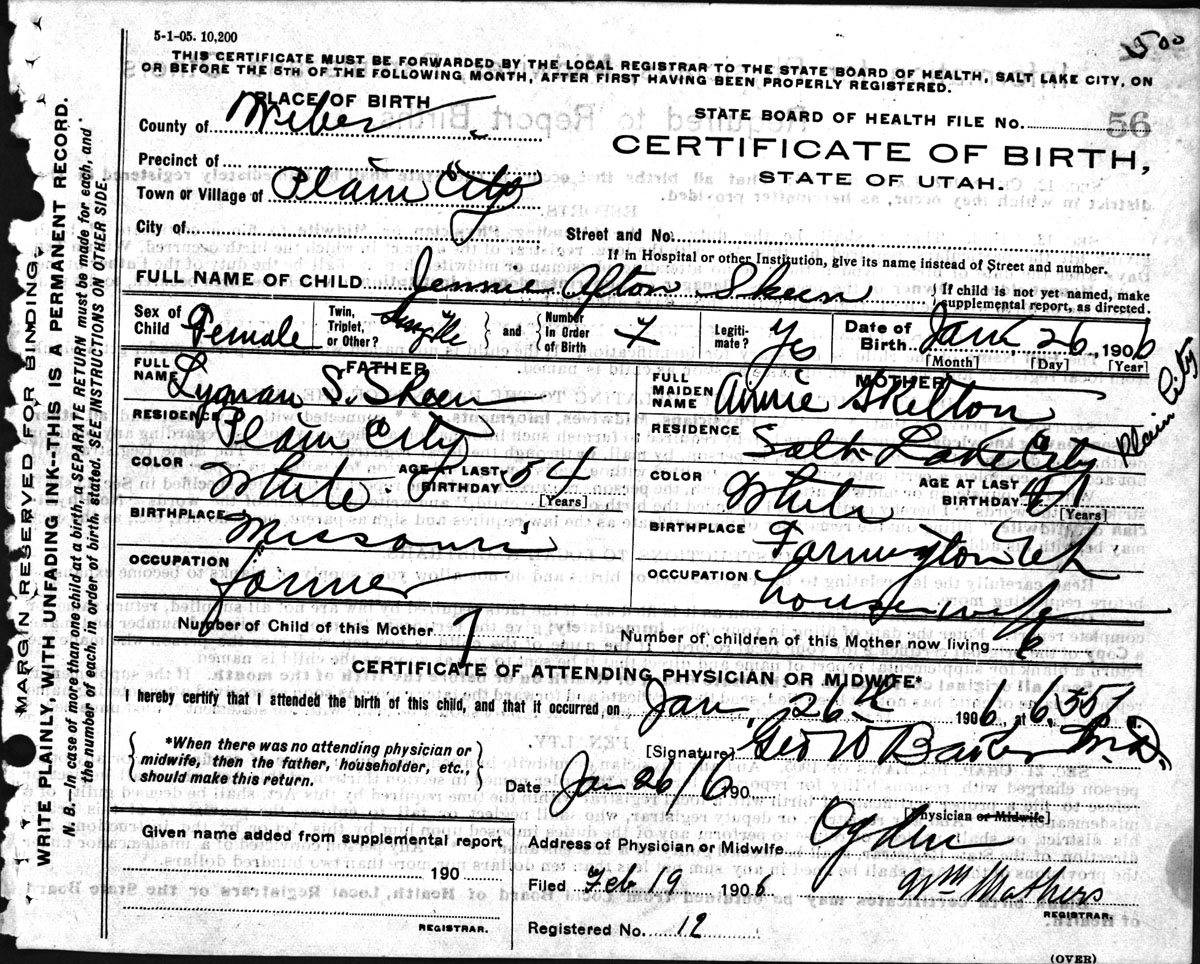 5-1-05. 10,200
THIS CERTIFICATE MUST BE FORWARDED BY THE LOCAL REGISTRAR TO THE STATE BOARD OF HEALTH, SALT LAKE CITY, ON
OR BEFORE THE 5TH OF THE FOLLOWING MONTH, AFTER FIRST HAVING BEEN PROPERLY REGISTERED.
MARGIN RESERVED FOR BINDING.
WRITE PLAINLY, WITH UNFADING INK--THIS IS A PERMANENT RECORD.
N. B.--In case of more than one child at a birth, a SEPARATE RETURN must be made for each, and
the number of each, in order of birth, stated. SEE INSTRUCTIONS ON OTHER SIDE.
PLACE OF BIRTH
County of Weber
Precinct of
Town or Village of Plain City
City of
STATE BOARD OF HEALTH FILE NO. 56
CERTIFICATE OF BIRTH,
STATE OF UTAH.
Street and No.
If in Hospital or other Institution, give its name instead of Street and number.
FULL NAME OF CHILD Jennie Afton Skeen
If child is not yet named, make
supplemental report, as directed.
Sex of Child Female
Twin, Triplet, or Other? Single
and
Number In Order of Birth 7
Legitimate? Yes
Date of Birth Jan 26, 1906
[Month] [Day] [Year]
FATHER
FULL NAME Lyman S. Skeen
RESIDENCE Plain City
COLOR White
AGE AT LAST BIRTHDAY 54
[Years]
BIRTHPLACE Missouri
OCCUPATION
MOTHER
FULL MAIDEN NAME Annie Skelton
RESIDENCE Salt Lake City
Plain City
COLOR White
AGE AT LAST BIRTHDAY
[Years]
BIRTHPLACE Farmington Uth
OCCUPATION housewife
Number of Child of this Mother 7
Number of children of this Mother now living 6
CERTIFICATE OF ATTENDING PHYSICIAN OR MIDWIFE*
I hereby certify that I attended the birth of this child, and that it occurred on Jan, 26th 1906, at 6,35
*When there was no attending physician or
midwife, then the father, householder, etc.,
should make this return.
[Signature] Geo W Baker M.D.
Date Jan 26/6 190
[Physician or Midwife]
Address of Physician or Midwife Ogden
Given name added from supplemental report
190
REGISTRAR.
Filed Feb 19 1906
Wm Mathers
REGISTRAR.
Registered No. 12
(OVER)